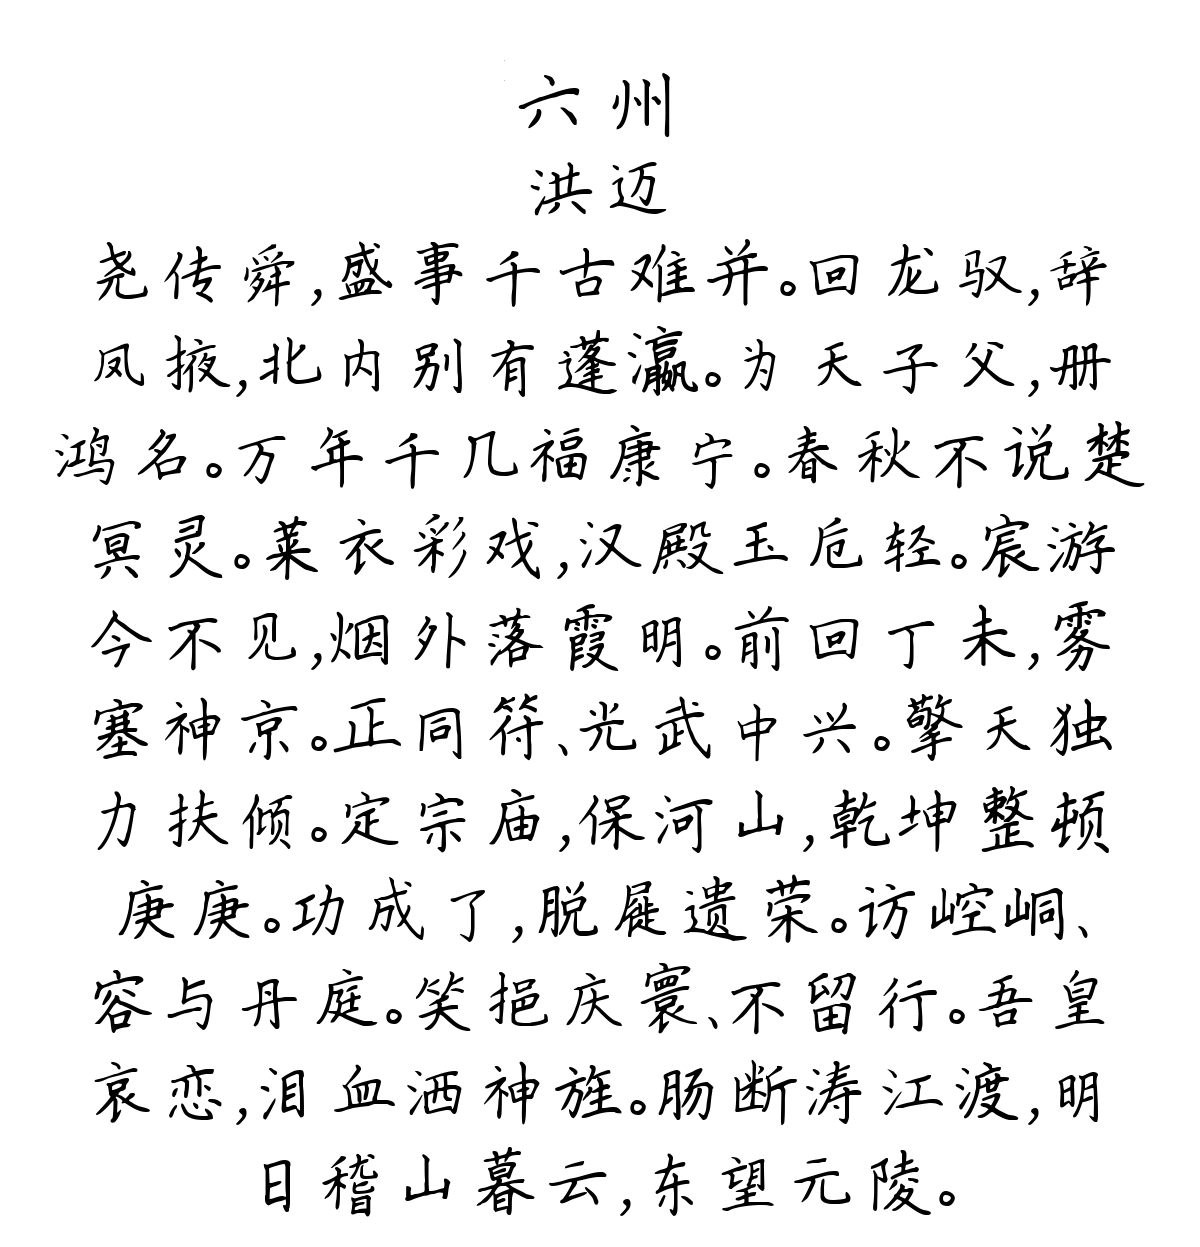 六州
洪迈
尧传舜,盛事千古难并。回龙驭,辞
凤掖,北内别有蓬瀛。为天子父,册
鸿名。万年千几福康宁。春秋不说楚
冥灵。莱衣彩戏,汉殿玉卮轻。宸游
今不见,烟外落霞明。前回丁未,雾
塞神京。正同符、光武中兴。擎天独
力扶倾。定宗庙,保河山,乾坤整顿
庚庚。功成了,脱屣遗荣。访崆峒、
容与丹庭。笑挹庆寰、不留行。吾皇
哀恋,泪血洒神旌。肠断涛江渡,明
日稽山暮云,东望元陵。